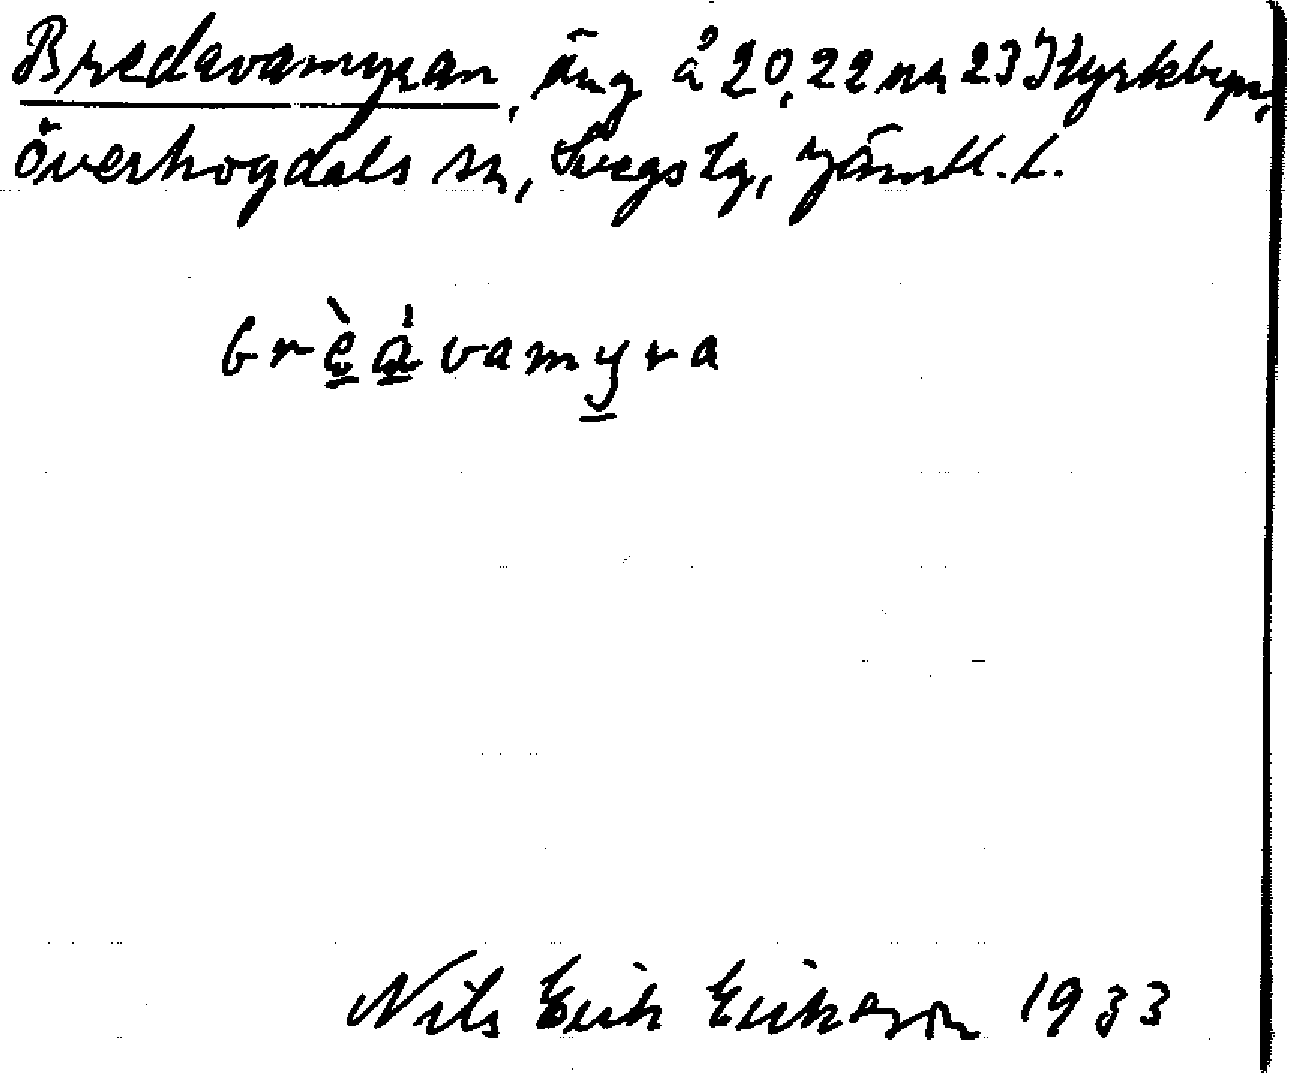 Bredavamyran, äng å 20, 22 och 23 Kyrkbyn,
Överhogdals sn, Svegs tg, Jämtl. l.
brèávamyra
Nils Erik Eriksson 1933